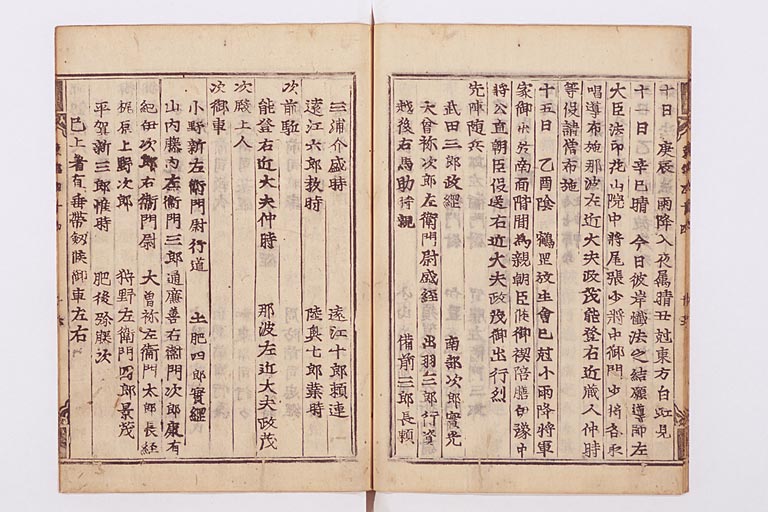 十日 庚辰 雨降入夜属晴丑剋東方白虹見
十一日 辛巳晴 今日彼岸懺法之結願導師左
大臣法印花山院中将尾張少将中御門少将各取
唱導布施那波左近大夫政茂能登右近蔵人仲時
等役請僧布施
十五日 乙酉陰 鶴岡放生會巳剋小雨降将軍
家御出於南面階間為親朝臣候御禊陪膳伊豫中
将公直朝臣役送右近大夫政茂御出行列
先陣随兵
武田三郎政綱 南部次郎實光
大曽祢次郎左衛門尉盛經 出羽三郎行資
越後右馬助時親 備前三郎長頼
三浦介盛時 遠江十郎頼連
遠江六郎教時 陸奥七郎業時
次前駈
能登右近大夫仲時 那波左近大夫政茂
次殿上人
次御車
小野新左衛門尉行道 土肥四郎實綱
山内藤内左衛門三郎通廉善右衛門次郎康有
紀伊次郎右衛門尉 大曽祢左衛門太郎長經
梶原上野次郎 狩野左衛門四郎景茂
平賀新三郎惟時 肥後弥藤次
已上著直垂帯釼候御車左右